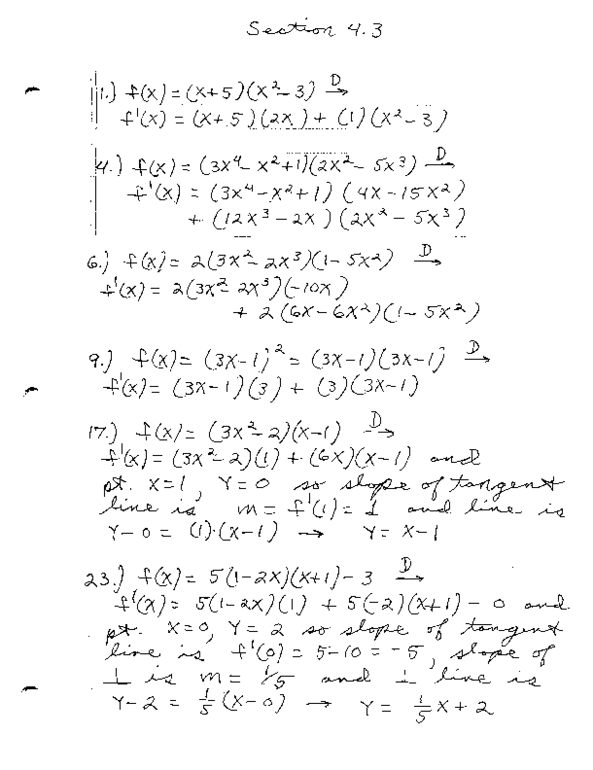 Section 4.3
1.) f(x) = (x+5)(x²-3) D→
f'(x) = (x+5)(2x) + (1)(x²-3)
4.) f(x) = (3x⁴-x²+1)(2x²-5x³) D→
f'(x) = (3x⁴-x²+1)(4x-15x²)
+ (12x³-2x)(2x²-5x³)
6.) f(x) = 2(3x²-2x³)(1-5x²) D→
f'(x) = 2(3x²-2x³)(-10x)
+ 2(6x-6x²)(1-5x²)
9.) f(x) = (3x-1)² = (3x-1)(3x-1) D→
f'(x) = (3x-1)(3) + (3)(3x-1)
17.) f(x) = (3x²-2)(x-1) D→
f'(x) = (3x²-2)(1) + (6x)(x-1) and
pt. x=1, y=0 so slope of tangent
line is m = f'(1) = 1 and line is
Y-0 = (1)·(x-1) → Y = x-1
23.) f(x) = 5(1-2x)(x+1)-3 D→
f'(x) = 5(1-2x)(1) + 5(-2)(x+1) - 0 and
pt. x=0, Y=2 so slope of tangent
line is f'(0) = 5-10 = -5, slope of
⊥ is m = 1/5 and ⊥ line is
Y-2 = 1/5 (x-0) → Y = 1/5 x + 2